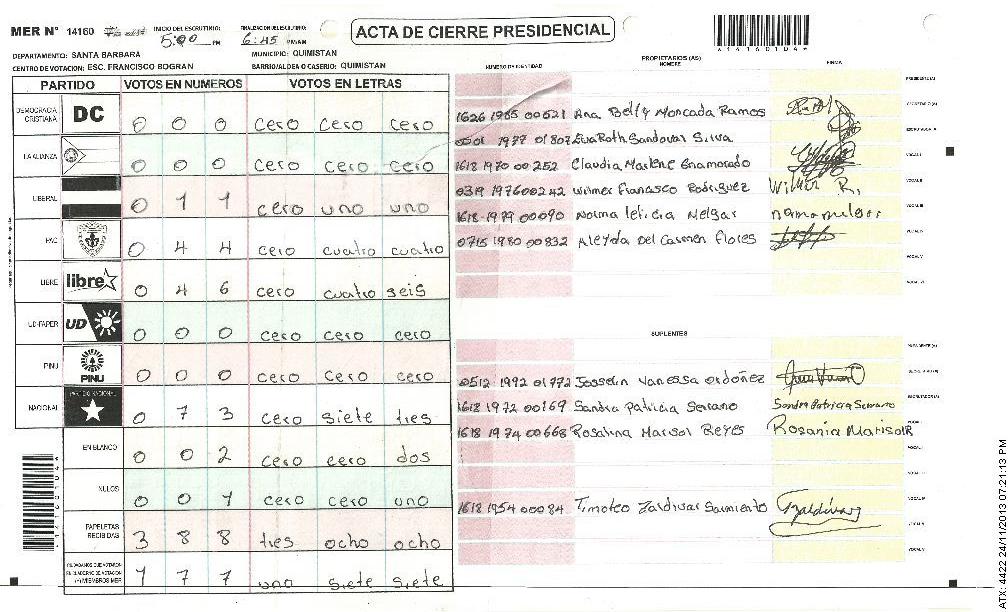 MER Nº 14160 INICIO DEL ESCRUTINIO: 5:00 PM FINALIZACION DEL ESCRUTINIO: 6:45 PM/AM ACTA DE CIERRE PRESIDENCIAL
DEPARTAMENTO: SANTA BARBARA MUNICIPIO: QUIMISTAN
CENTRO DE VOTACION: ESC. FRANCISCO BOGRAN BARRIO/ALDEA O CASERIO: QUIMISTAN
PARTIDO VOTOS EN NUMEROS VOTOS EN LETRAS
DEMOCRACIA CRISTIANA DC 0 0 0 cero cero cero
LA ALIANZA 0 0 0 cero cero cero
LIBERAL 0 1 1 cero uno uno
PAC 0 4 4 cero cuatro cuatro
LIBRE libre 0 4 6 cero cuatro seis
UD-FAPER UD 0 0 0 cero cero cero
PINU PINU 0 0 0 cero cero cero
NACIONAL PARTIDO NACIONAL 0 7 3 cero siete tres
EN BLANCO 0 0 2 cero cero dos
NULOS 0 0 1 cero cero uno
PAPELETAS RECIBIDAS 3 8 8 tres ocho ocho
CIUDADANOS QUE VOTARON EN CUADERNO DE VOTACION (+) MIEMBROS MER 1 7 7 uno siete siete
PROPIETARIOS (AS)
NUMERO DE IDENTIDAD NOMBRE FIRMA
PRESIDENTE(A)
1626 1985 00621 Ana Belly Moncada Ramos SECRETARIO(A)
0501 1977 01807 Eva Roth Sandoval Silva ESCRUTADOR(A)
1618 1970 00252 Claudia Marlene Enamorado VOCAL I
0319 1976 00242 Wilmer Francisco Rodriguez Wilmer R. VOCAL II
1618-1979 00090 Norma leticia Melgar VOCAL III
0715 1980 00832 Aleyda Del Carmen flores VOCAL IV
VOCAL V
VOCAL VI
SUPLENTES
PRESIDENTE(A)
0512 1992 01772 Josselin Vanessa Ordóñez SECRETARIO(A)
1618 1972 00169 Sandra Patricia Serrano Sandra Patricia Serrano ESCRUTADOR(A)
1618 1974 00668 Rosalina Marisol Reyes Rosania Marisol R VOCAL I
VOCAL II
VOCAL III
1618 1954 00084 Timoteo Zaldivar Sarmiento Zaldívar VOCAL IV
VOCAL V
VOCAL VI
ATX: 4422 24/11/2013 07:21:13 PM